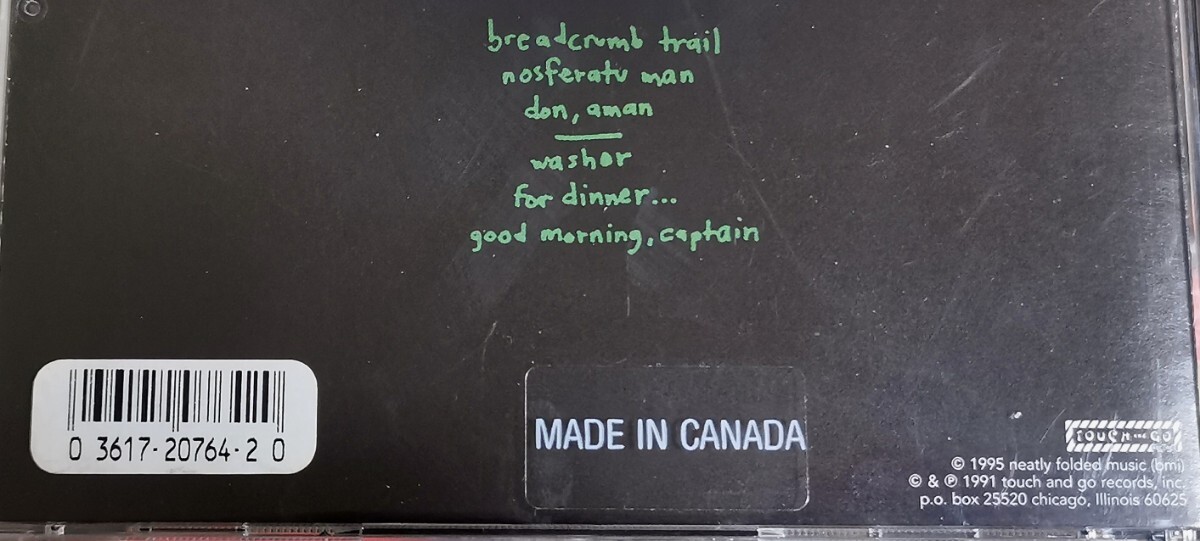 breadcrumb trail
nosferatu man
don, aman
washer
for dinner...
good morning, captain
0 3617-20764-2 0
MADE IN CANADA
TOUCH AND GO
© 1995 neatly folded music (bmi)
© & ℗ 1991 touch and go records, inc.
p.o. box 25520 chicago, Illinois 60625